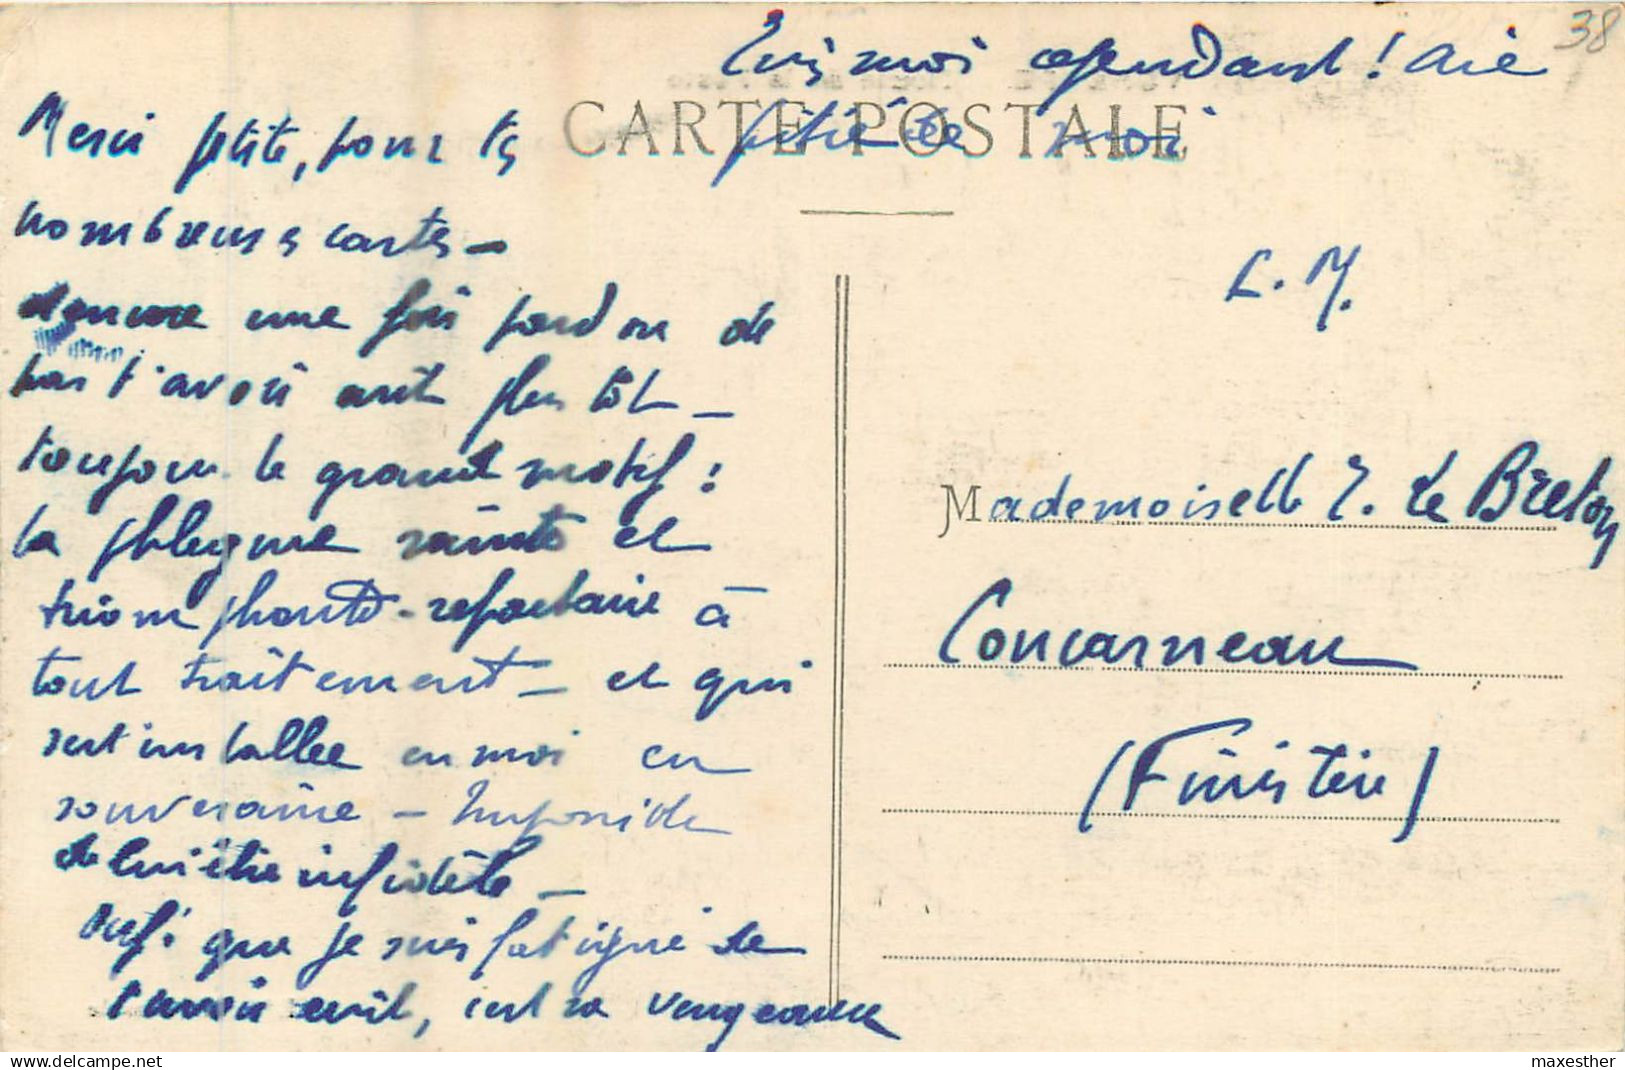 38
Ecris moi cependant ! aie
pitié de moi
CARTE POSTALE
Merci petite, pour tes
nombreuses cartes –
une fois pardon de
pas t'avoir écrit plus tôt –
toujours le grand motif :
la phlegme sainte et
triomphante – réfractaire à
tout traitement – et qui
s'est installée en moi en
souveraine – Impossible
de lui être infidèle –
Ouf ! que je suis fatigué de
t'avoir écrit, c'est sa vengeance
L. M.
Mademoiselle Y. Le Breton
Concarneau
(Finistère)
Delcampe.net
maxesther